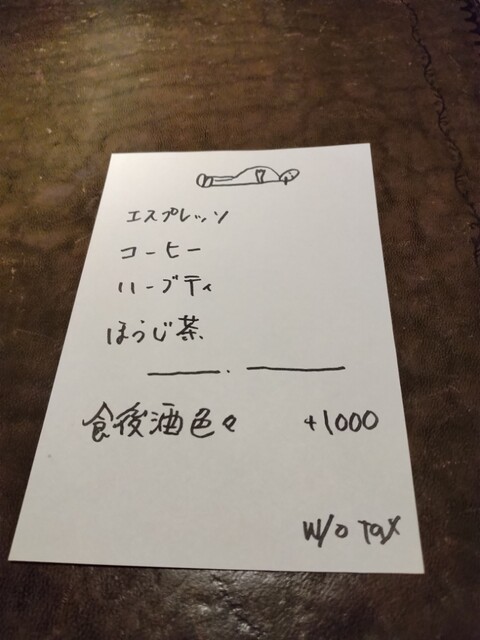 エスプレッソ
コーヒー
ハーブティ
ほうじ茶
食後酒色々 +1000
W/O Tax